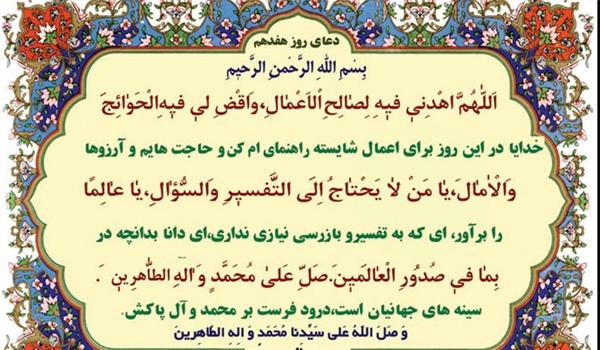 دعای روز هفدهم
بِسْمِ اللهِ الرَّحْمنِ الرَّحیمِ
اَللّهُمَّ اهْدِنی فیهِ لِصالِحِ الْاَعْمالِ،وَاقْضِ لی فیهِ الْحَوائِجَ
خدایا در این روز برای اعمال شایسته راهنمای ام کن و حاجت هایم و آرزوها
وَالْامالَ،یا مَنْ لا یَحْتاجُ اِلَی التَّفْسیرِ وَالسُّؤالِ،یا عالِمًا
را برآور، ای که به تفسیرو بازرسی نیازی نداری،ای دانا بدانچه در
بِما فی صُدُورِ الْعالَمینَ.صَلِّ عَلی مُحَمَّدٍ وَ الهِ الطّاهِرینَ .
سینه های جهانیان است،درود فرست بر محمد و آل پاکش.
وَ صَلَ اللهُ عَلی سَیِّدِنا مُحَمَد وَ الِهِ الطاهِرینَ